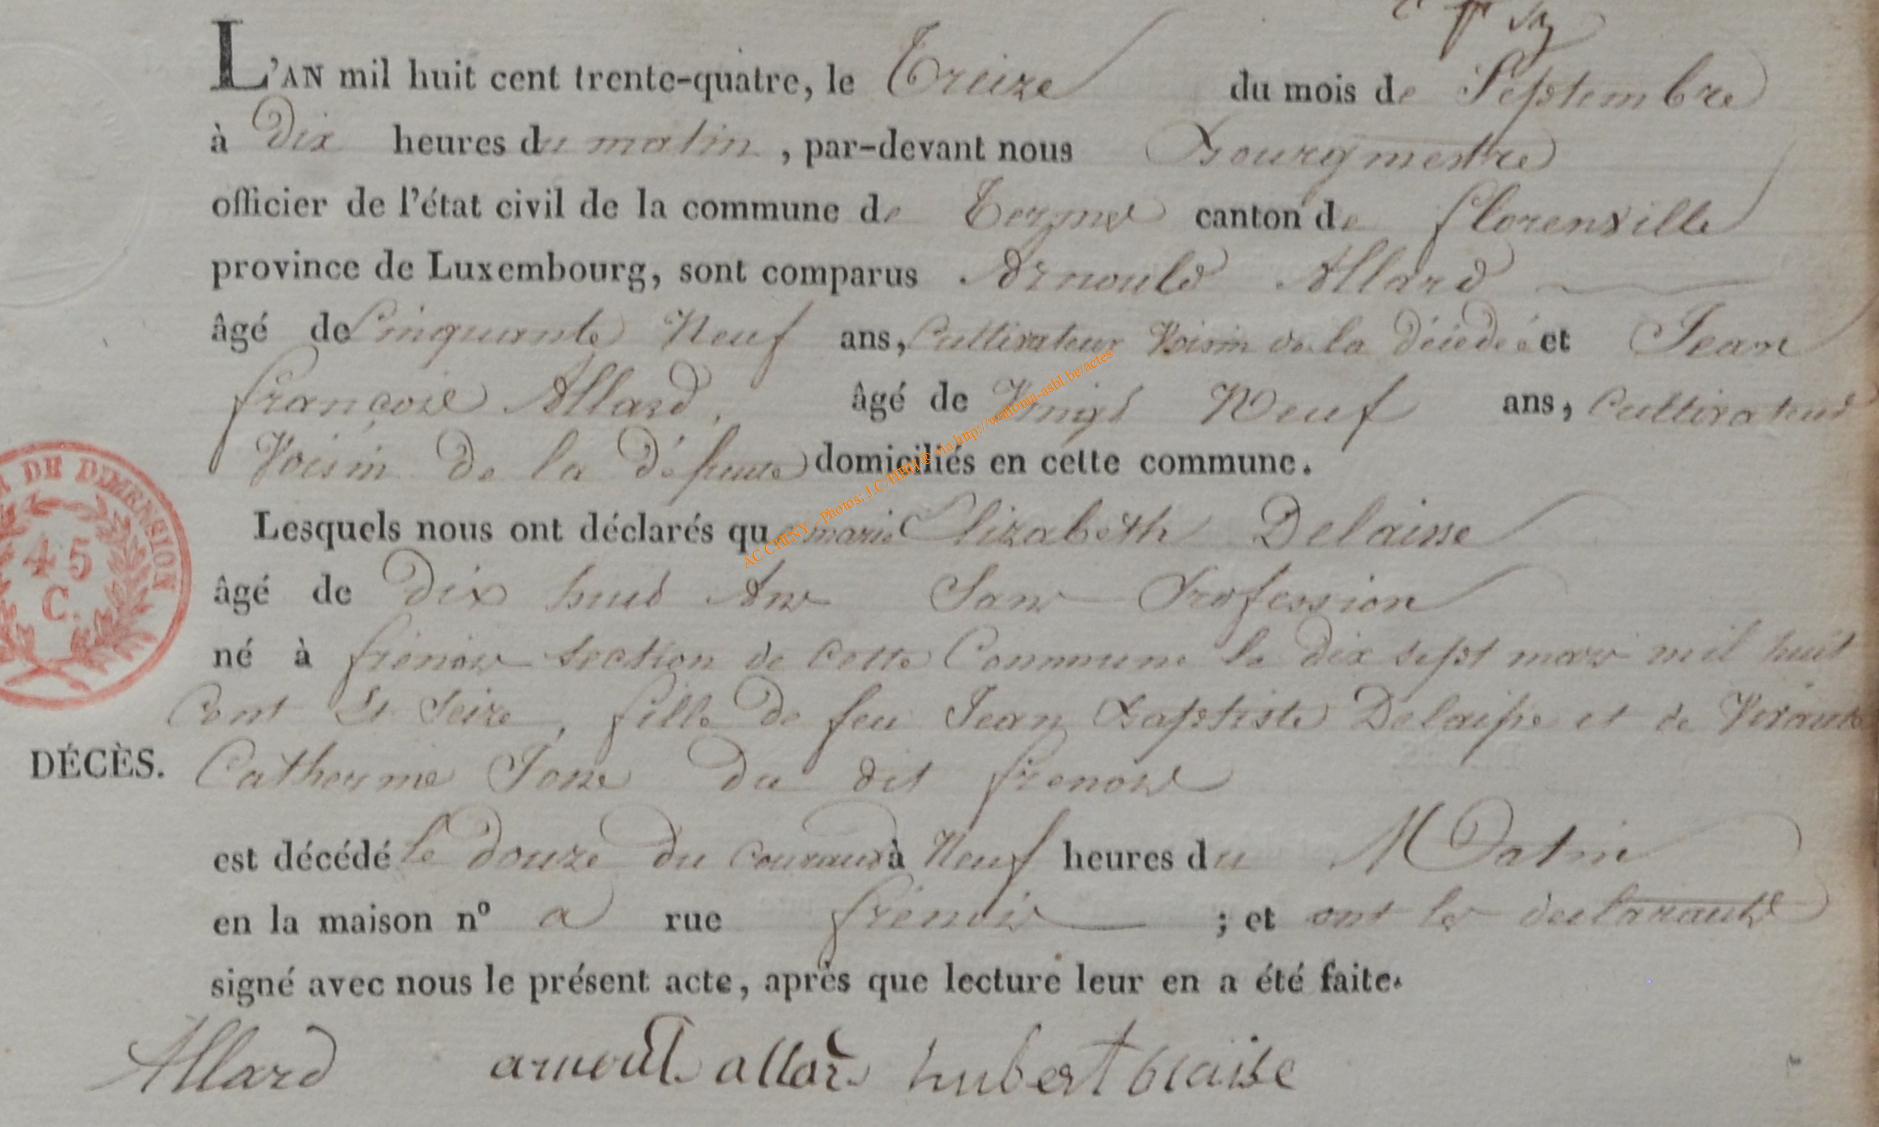 L'AN mil huit cent trente-quatre, le Treize du mois de Septembre
à Dix heures du matin, par-devant nous Bourgmestre
officier de l'état civil de la commune de Termes canton de florenville
province de Luxembourg, sont comparus Arnould Allard
âgé de Cinquante Neuf ans, Cultivateur Voisin de la décédée et Jean
françois Allard, âgé de Vingt Neuf ans, Cultivateur
Voisin de la défunte domiciliés en cette commune.
Lesquels nous ont déclarés que marie Elizabeth Delaisse
âgé de Dix huit Ans Sans Profession
né à frenois section de cette Commune le dix sept mars mil huit
Cent Et Seize, fille de feu Jean Baptiste Delaisse et de
Catherine du dit frenois
est décédé le douze du courant à Neuf heures du Matin
en la maison nº a rue frenois ; et ont les declarants
signé avec nous le présent acte, après que lecture leur en a été faite.
DÉCÈS.
Allard arnoult allard hubert blaise
DE DIMENSION
45
C.
AC CHINY - Photos: J.C. via http://wallonia-asbl.be/actes